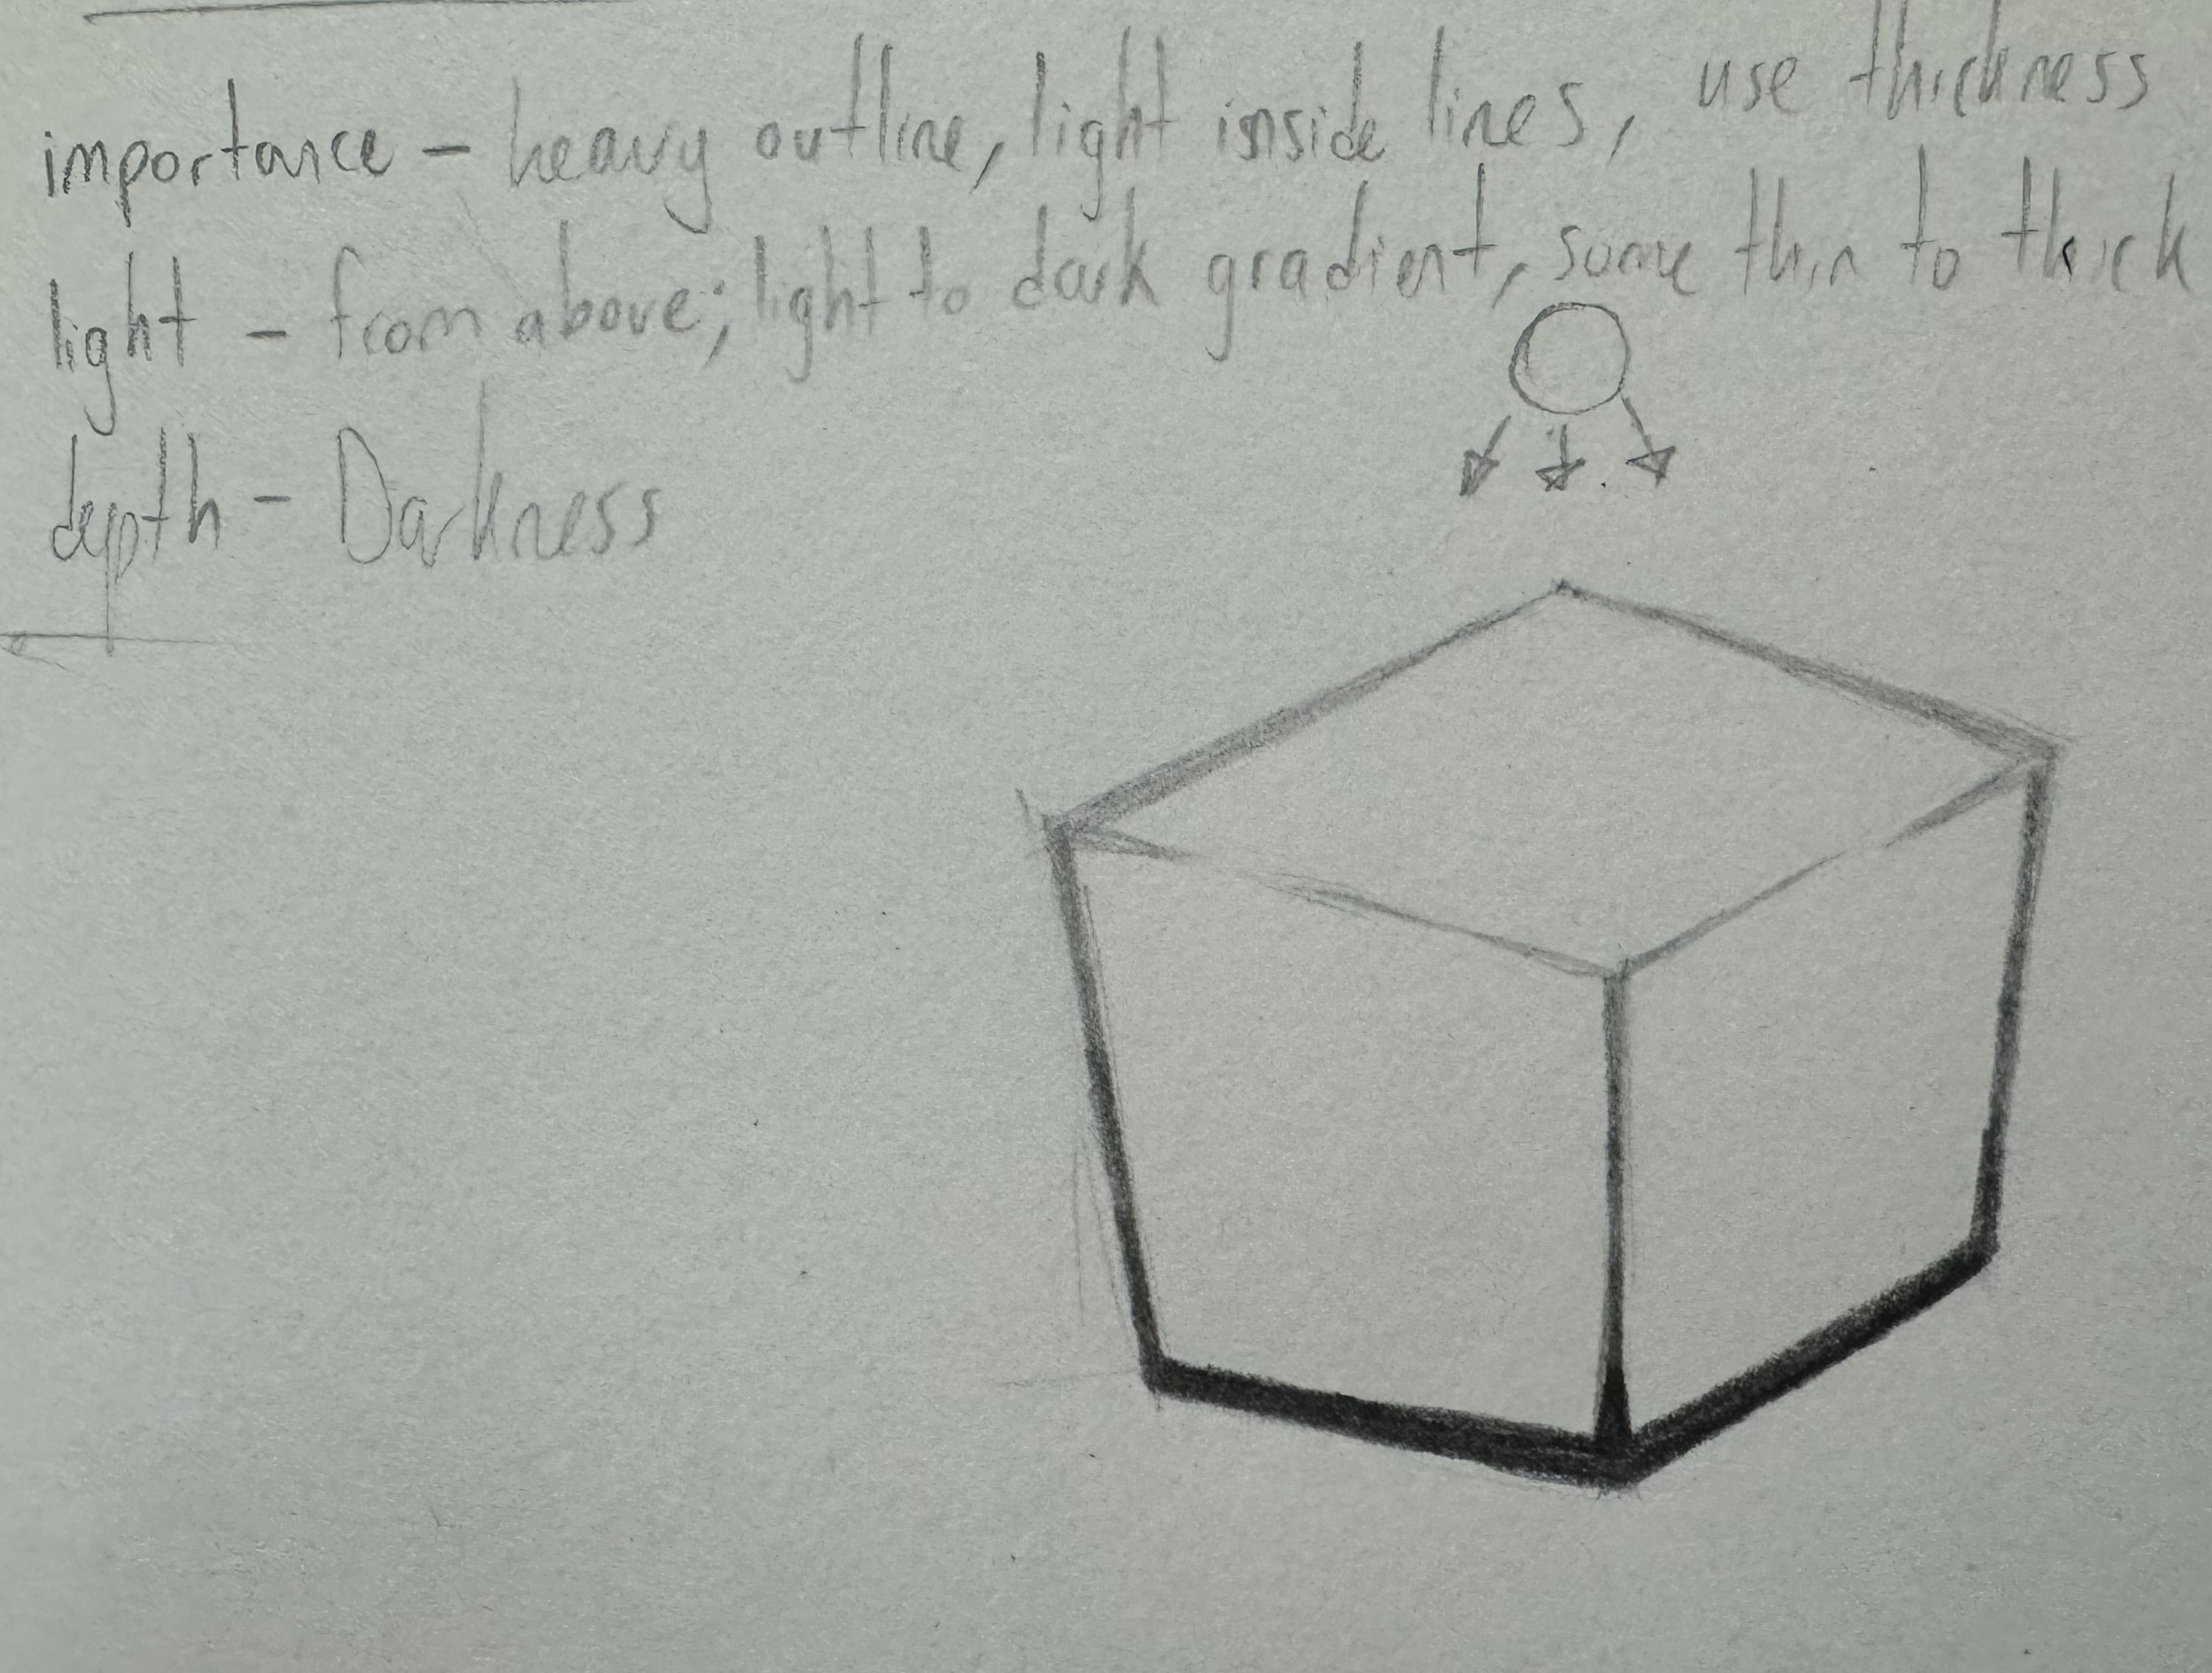 importance - heavy outline, light inside lines, use thickness
light - from above; light to dark gradient, some thin to thick
depth - Darkness